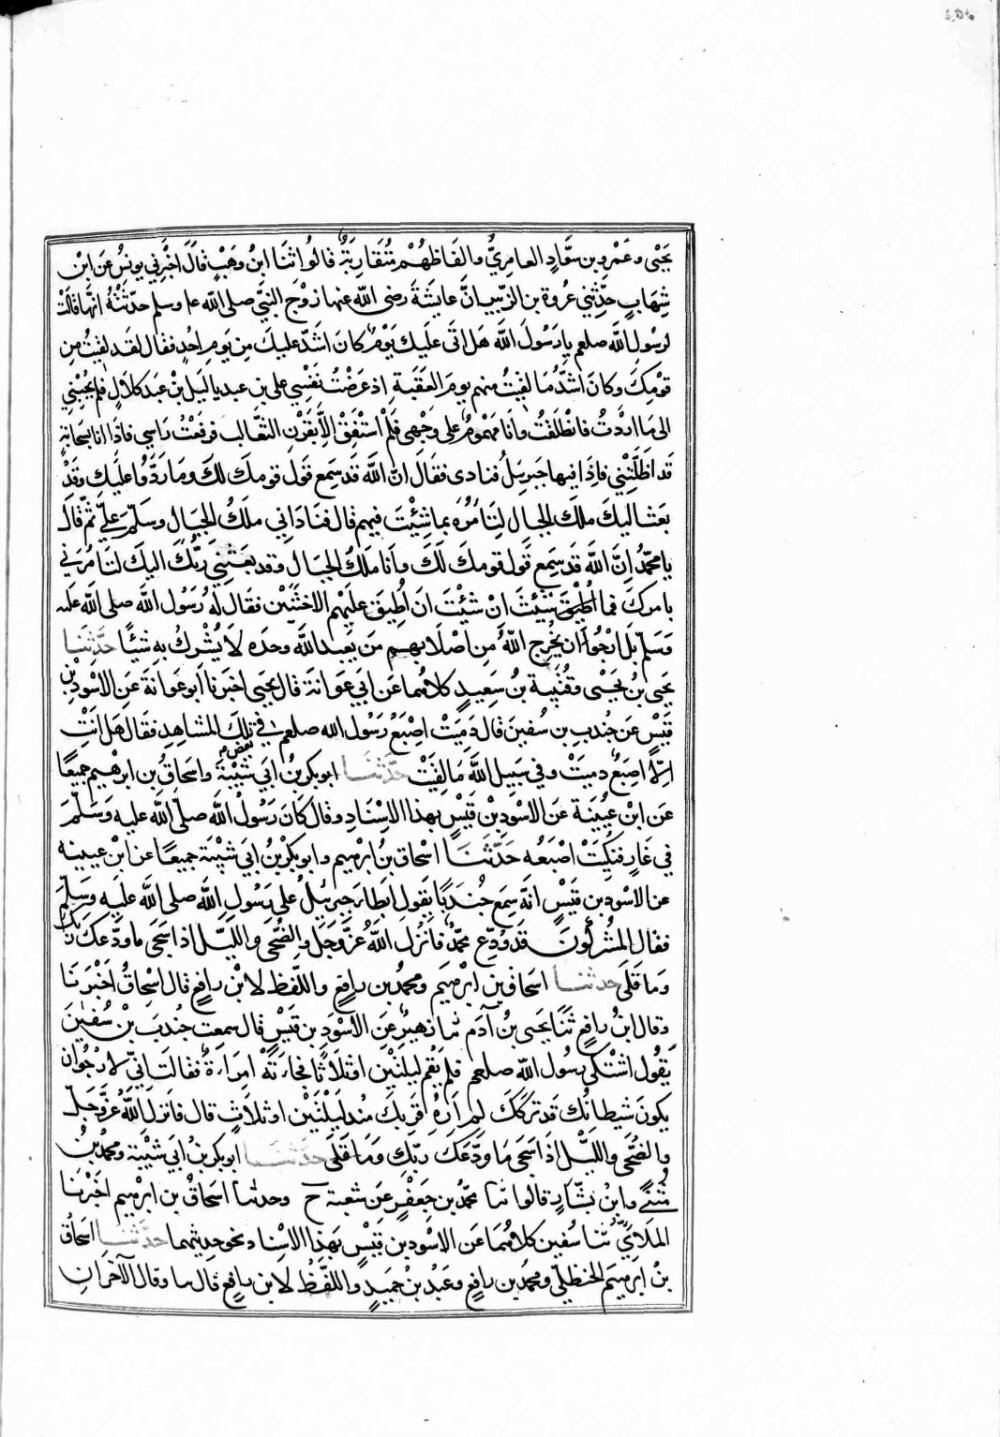 يَحْيَى وعَمْرو بن سَوَّادٍ العامِرِيُّ والفَاظُهُمْ مُتَقارِبَةٌ قالوا ثَنَا ابْنُ وَهْبٍ قَالَ اخْبَرَني يونسُ عَن ابْنِ
شِهَابٍ حَدَّثَني عُروة بن الزّبَيرِ انَّ عايشَةَ رضى الله عنها زَوْجَ النبيِّ صلى الله عليه وسلم حَدّثَتْهُ انَّهَا قَالَتْ
لرسُولِ اللهِ صلعم يا رَسُولَ اللهِ هَل اتَى عَلَيكَ يَوْمٌ كانَ اشَدَّ عليكَ مِن يَومِ احُدٍ فقال لقد لقِيتُ مِن
قومِكِ وكانَ اشَدُّ مَا لقِيتُ منهم يومَ العَقَبَةِ اذ عَرَضْتُ نَفْسِي على بن عبد يا ليل بْنِ عَبد كلالٍ فلم يُجِبْني
الى مَا اردْتُ فانطَلَقْتُ وانَا مَهْمُومٌ على وَجْهِى فَلَمْ اسْتَفِقْ الّا بقَرْنِ الثَّعَالبِ فرفَعْتُ رَاسِي فاذا انا بسَحابَةٍ
قَد اظَلَّتْنِي فاذا فيها جَبرئيلُ فنادى فقال انّ اللهَ قد سَمِع قَول قومك لكَ وما رَدُّوا عليك وقَدْ
بعث اليكَ ملَكَ الجبالِ لِتَامُرَهُ بما شِئْتَ فيهم قال فنَادَاني ملَكُ الجبالِ وسلّمَ عليّ ثمّ قَالَ
يا محمّدُ اِنَّ اللهَ قَد سَمِعَ قَولَ قومكَ لَكَ وانَا ملكُ الجبالِ وقد بعَثَنِي رَبُّكَ اليكَ لتامُرَني
بامرِكَ فما شِئْتَ انْ شئْتَ انَ اُطْبِقَ عَلَيهِم الاخْشَبَيْنِ فقَال لهُ رَسُولُ اللهِ صلى الله عليه
وسَلّم بَلْ ارْجُوا اَن يُخْرِجَ اللهُ مِن اصْلابهِم مَن يَعبد اللهَ وحدَه لا يُشْرِكُ بهِ شَيئًا حدّثنا
يَحيَى بنُ يَحْيى وقُتَيبة بنُ سَعِيدٍ كلاهُما عَن ابي عَوانَةَ قال يحيَى اخبَرنا ابو عَوانَة عَنِ الاسْودِ بْنِ
قَيْسٍ عَن جُندبِ بن سُفينَ قال دَمِيَتْ اِصْبَعُ رَسُولِ الله صلعم في بعض تِلْكَ المشَاهِدِ فقال هَل انْتِ
الّا اصبعٌ دمِيتْ وفي سَبيلِ اللهِ مَا لقِيتْ حدّثنا ابو بكر بنُ ابي شَيْبَةَ واسحَاقُ بن ابرهيم جميعًا
عن ابن عُيينَة عن الاسْودِ بن قَيْسٍ بهذا الاسْنادِ وقال كانَ رَسُولُ اللهِ صلّى الله عليه وَسَلّمَ
في غَارٍ فنُكِبَتْ اصْبَعُه حَدّثَنَا اسْحاق بن ابرهيم وابو بكرْ بنُ ابي شَيْبَة جميعًا عن ابْن عيينه
عن الاسْودِ بن قَيْسٍ انّه سمِعَ جُندَبًا يقولُ ابطَا جبرئيلُ على رَسُولِ اللهِ صلى اللهُ عليه وسَلَّمَ
فقال المُشركُونَ قَد وُدِّعَ محمّدٌ فانزَلَ اللهُ عَزَّ وجَلَّ والضُّحَى والليْلِ اذا سَجَى ما ودَّعَكَ رَبُّكَ
ومَا قَلَى حدثنا اسحَاق بن ابرْهيم ومحمدُ بن رافعٍ واللّفظُ لابنِ رافعٍ قال اسْحاقُ اَخْبَرَنَا
وقال ابنُ رافعٍ ثنا يَحيى بن آدَم نا زهيرٌ عَنِ الاسْودِ بن قَيْسٍ قال سمِعتُ جُندبَ بْنَ سُفْيانَ
يَقُولُ اشتَكَى رسُولُ اللهِ صلعم فلم يَقُم ليلتَيْنِ اوْ ثَلاثًا فجاءَتْهُ امرَاةٌ فقالت يا محمد انّي لارْجُو ان
يكونَ شيطانُكَ قد تركَكَ لم ارَهُ قَرِبَكَ منذ ليلَتَيْنِ او ثلاثٍ قال فانزل اللهُ عزَّ وجَلَّ
والضّحَى والليْلِ اذا سَجَى مَا ودَّعَكَ ربّكَ وَمَا قَلَى حَدّثنَا ابو بكرِ بنُ ابي شَيْبَة ومحمدُ بنُ
مُثَنًّى وابنُ بَشّارٍ قالوا ثنا محمّدُ بن جَعفَرٍ عَن شعبة ح وحدثنا اسحَاقُ بن ابرهيم اخبَرْنا
المُلَائيُّ ثنا سُفين كلاهُمَا عَن الاسْودِ بن قَيْسٍ بهذا الاسْناد نحو حديثهما حدّثنا اسحَاقُ
بنُ ابرهيم الحَنظَليّ ومحمدُ بن رافعٍ وعبدُ بنُ حُمَيدٍ واللّفْظُ لابن رافعٍ قال نا وقال الآخَرانِ